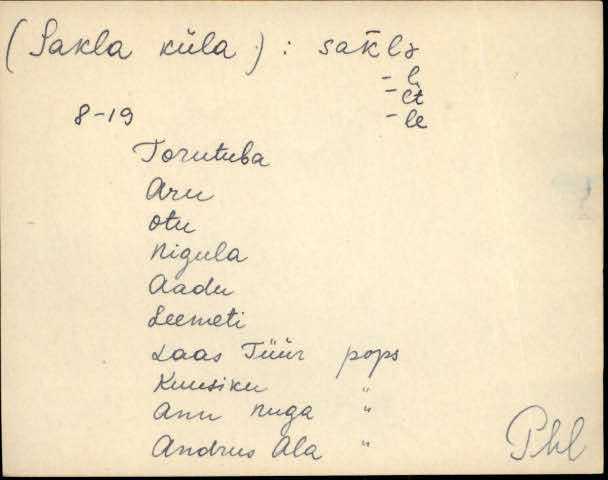 (Sakla küla) : sak̄lɜ
- l
- et
8-19 - le
Torutuba
Aru
Otu
Nigula
Aadu
Leemeti
Laas Tüür pops
Kuusiku "
Ann Nuga "
Andrus Ala "
Phl